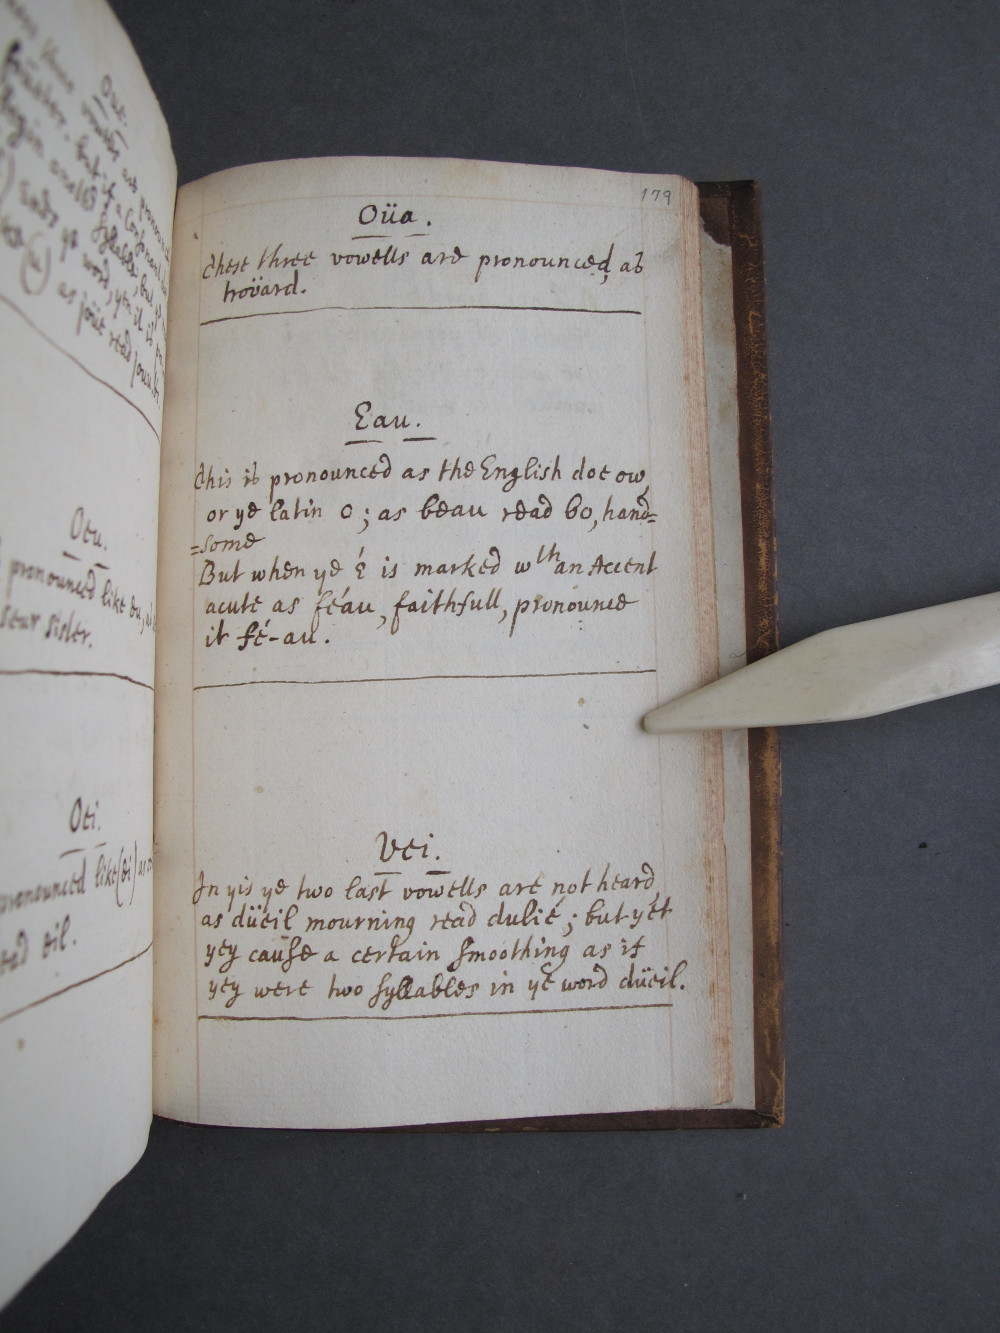 179
Oüa.
these three vowells are pronounced, as
troüard.
Eau.
this is pronounced as the English doe ow,
or ye latin o; as beau read bo, hand=
=some
But when ye é is marked wth an Accent
acute as féau, faithfull, pronounce
it fé-au.
Vei.
In yis ye two last vowells are not heard,
as düeil mourning read dulié; but yet
yey cause a certain smoothing as if
yey were two syllables in ye word düeil.
Oeu.
pronounced like eu, as
seur sister.
Oei.
pronounced like (ei) as
read eil.